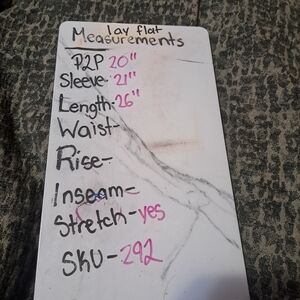 lay flat
Measurements
P2P 20"
Sleeve- 21"
Length- 26"
Waist-
Rise-
Inseam-
Stretch-yes
SKU-292